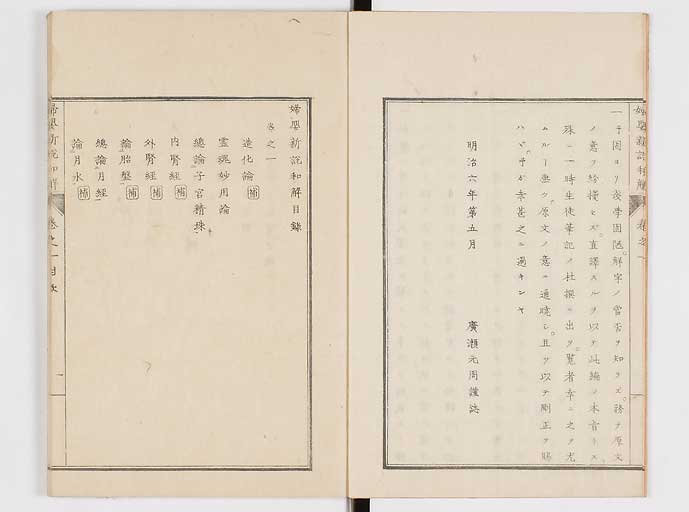 一予固ヨリ浅學固陋。解字ノ當否ヲ知ラズ。務テ原文
ノ意ヲ給優セズ。直譯スルヲ以テ此編ノ本旨トス
殊ニ一時生徒筆記ノ杜撰ニ出ヅ。覧者幸ニ之ヲ尤
ムル㆒無ク。原文ノ意ニ通曉シ。且ツ以テ剛正ヲ賜
ハヾ予ガ幸甚之ニ過キンヤ
明治六年第五月
廣瀬元周謹誌
婦嬰新説和解目錄
卷之一
造化論 補
靈魂妙用論
總論子宮精珠
内腎經 補
外腎經 補
論胎盤 補
總論月經
論月水 補
婦嬰新説和解
卷之一目次
一